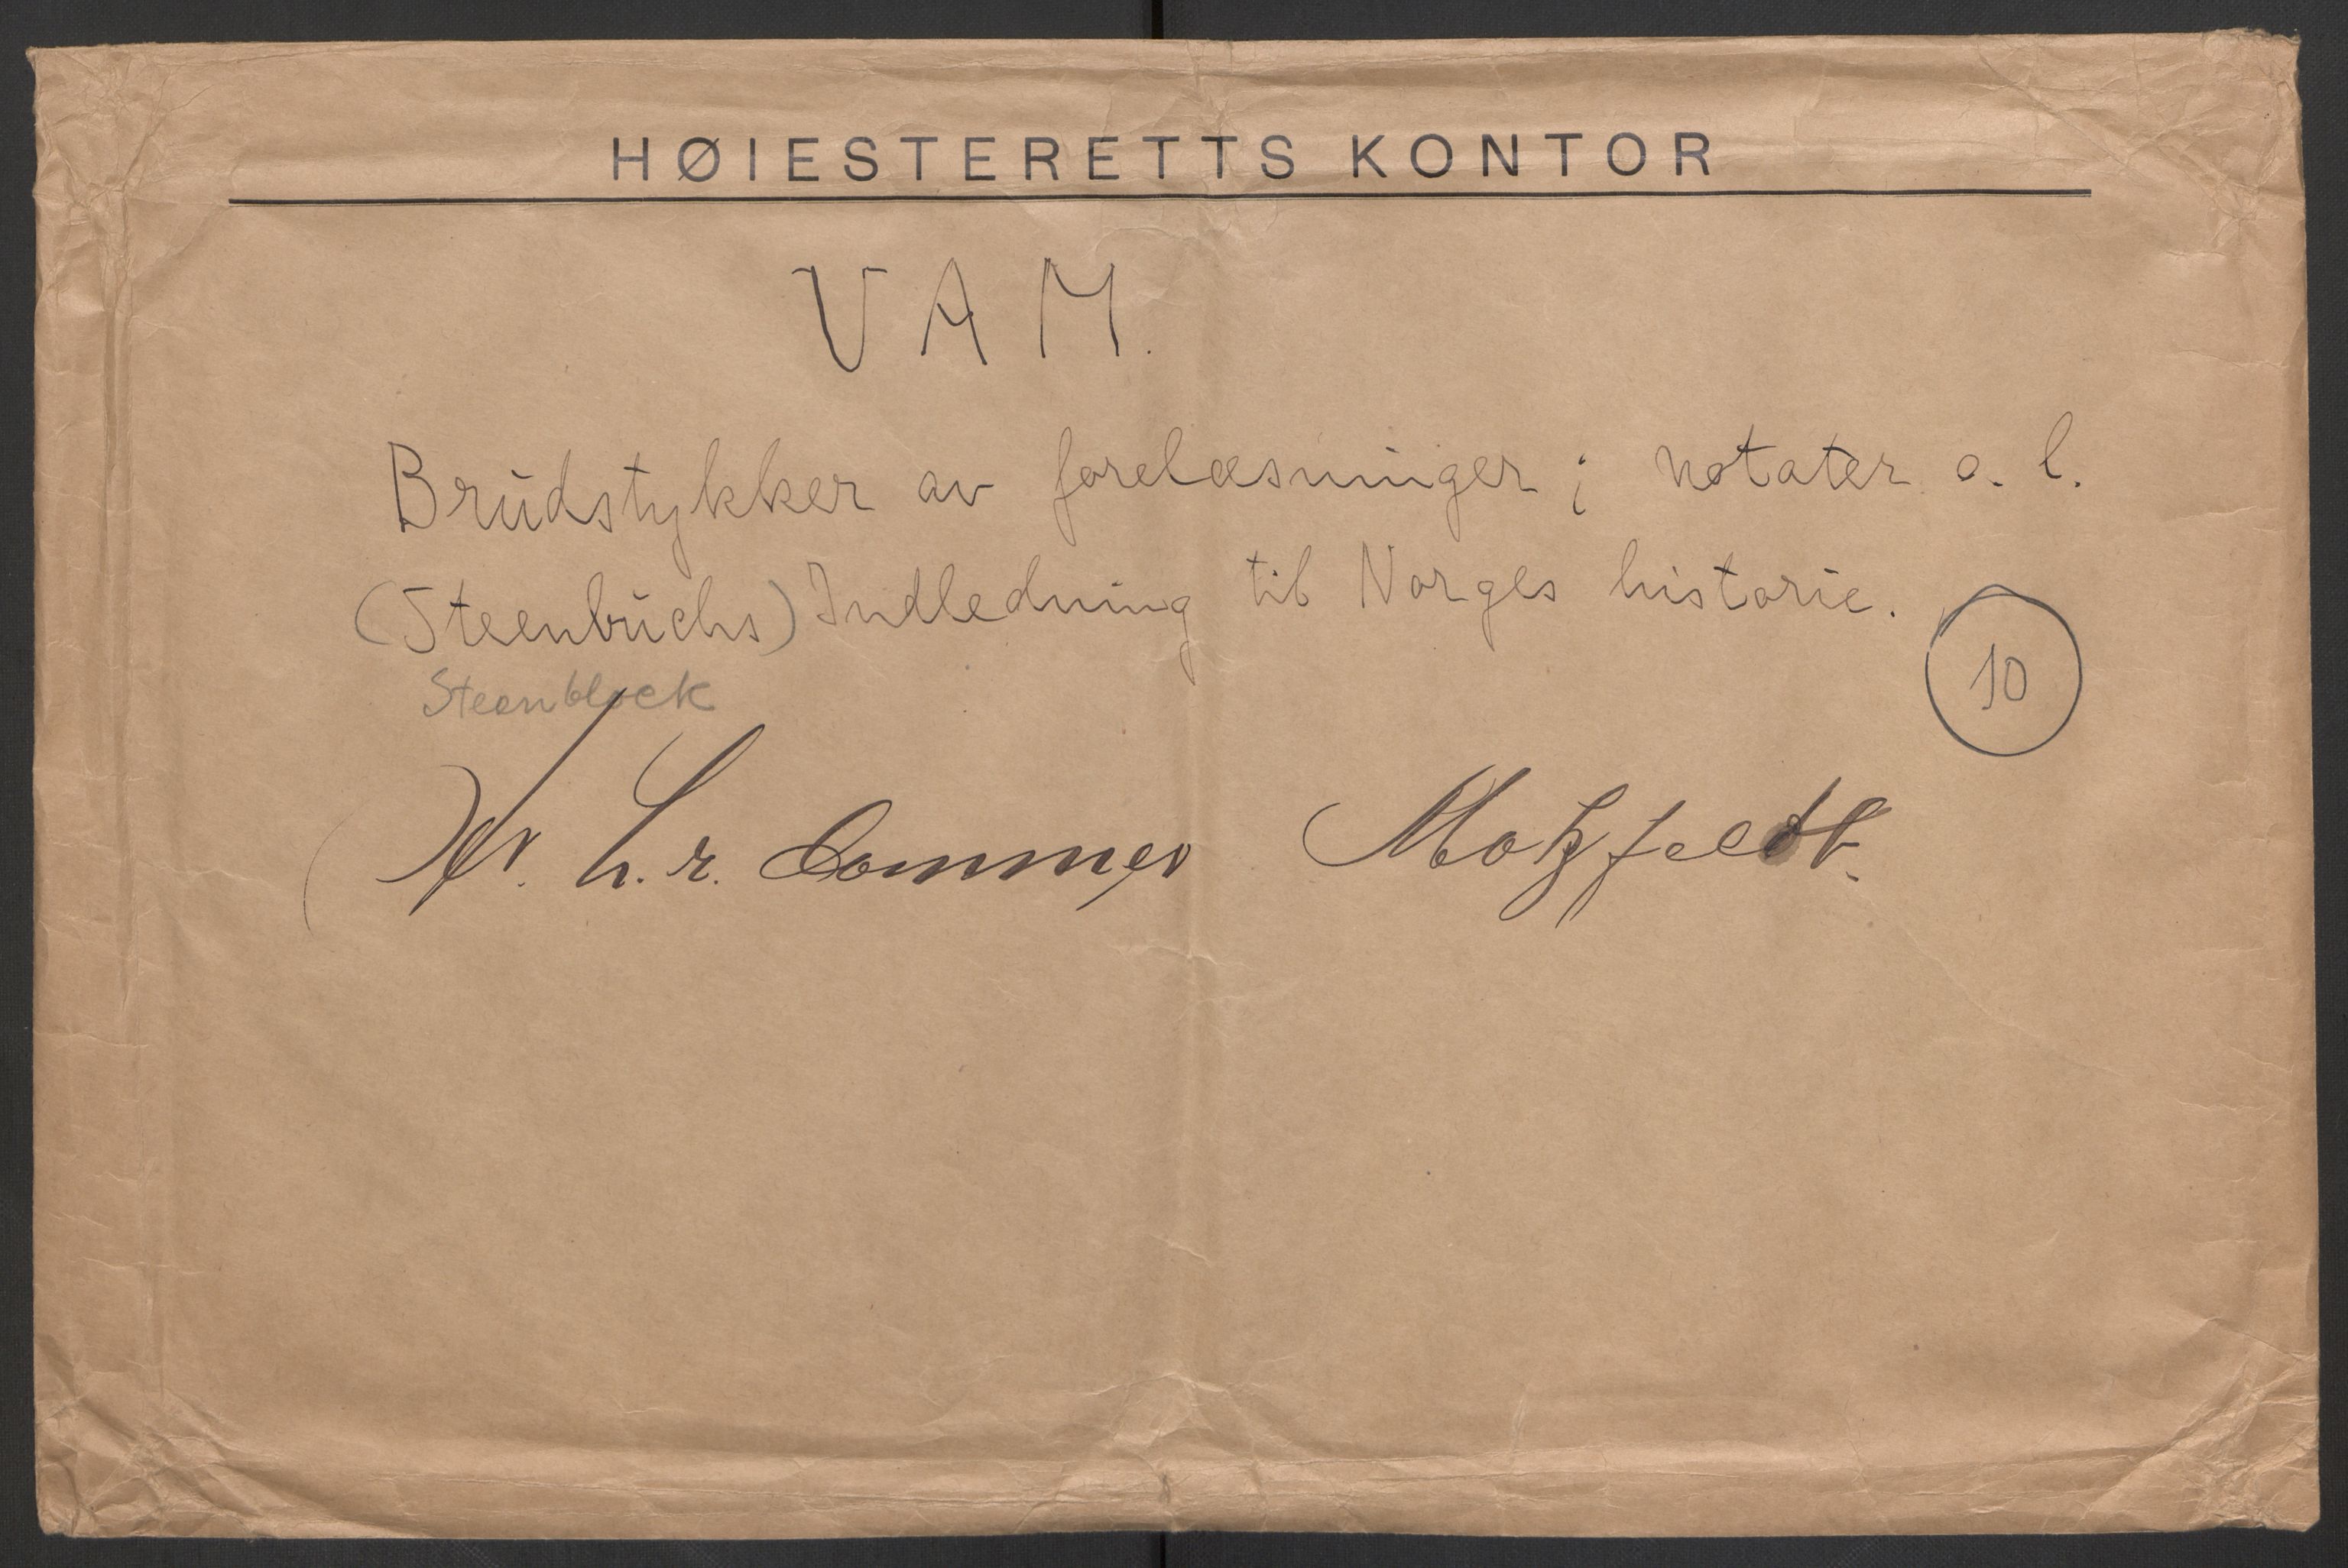 HØIESTERETTS KONTOR
V A M.
Brudstykker av forelæsninger; notater o. l.
(Steenbuchs) Indledning til Norges historie.
Steenblock
10
Hr. h.r. dommer Motzfeldt.